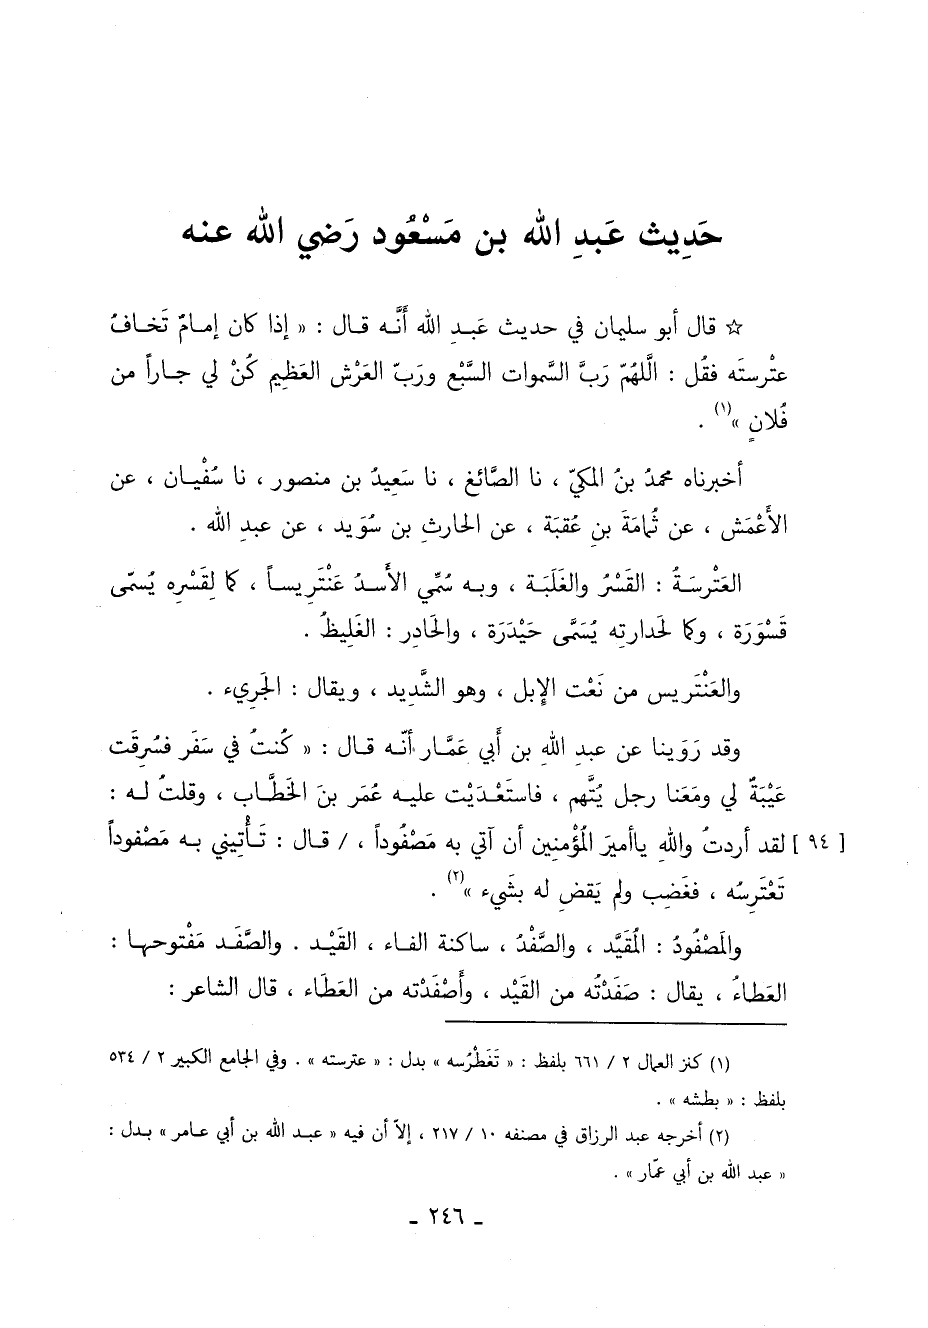 حَدِيث عَبدِ الله بن مَسْعُود رَضي الله عنه
☆ قال أبو سليمان في حديث عَبـدِ الله أنَّـه قـال : « إذا كان إمـامٌ تَخـافُ
عتْرستَه فقُل : اللَّهُمّ رَبَّ السَّموات السَّبْع ورَبّ العَرْش العَظِيم كُنْ لي جـاراً من
فُلانٍ »(١) .
أخبرناه محمدُ بنُ المكيّ ، نا الصَّائغ ، نا سَعِيدُ بن منصور ، نا سُفْيـان ، عن
الأَعْمَش ، عن ثُمامَةَ بنِ عُقبَة ، عن الحارثِ بن سُوَيد ، عن عبدِ الله .
العَتْرسَـةُ : القَسْرُ والغَلَبَـة ، وبـه سُمِّي الأسـدُ عَنْتَرِيسـاً ، كما لِقَسْرِه يُسمّى
قَسْوَرَة ، وكما لحَدارتِه يُسَمَّى حَيْدَرَة ، والحَادِر : الغَلِيظُ .
والعَنْتَرِيس من نَعْت الإبل ، وهو الشَّدِيد ، ويقال : الجَرِيء .
وقد رَوَينا عن عبد اللهِ بن أَبي عَمَّار أنّـه قـال : « كُنتُ في سَفَر فسُرِقَت
عَيْبَةٌ لي ومَعَنا رجل يُتَّهم ، فاستَعْدَيْت عليـه عُمَر بنَ الخَطَّـاب ، وقلتُ لـه :
[ ٩٤ ] لقد أردتُ واللهِ ياأميرَ المُؤْمنِين أن آتي به مَصْفُوداً ، / قـال : تَـأْتِيني بـه مَصْفوداً
تَعْتَرِسُه ، فغَضِب ولم يَقضِ له بشَيء »(٢) .
والمَصْفُودُ : المُقَيَّد ، والصَّفْدُ ، ساكنة الفـاء ، القَيْـد . والصَّفَـد مَفْتوحهـا :
العَطاءُ ، يقال : صَفَدْتُه من القَيْد ، وأَصْفَدْته من العَطَاء ، قال الشاعر :
(١) كنز العمال ٢ / ٦٦١ بلفظ : « تَغَطْرُسه » بدل : « عترسته » . وفي الجامع الكبير ٢ / ٥٣٤
بلفظ : « بطشه » .
(٢) أخرجه عبد الرزاق في مصنفه ١٠ / ٢١٧ ، إلاّ أن فيه « عبـد الله بن أبي عـامر » بـدل :
« عبد الله بن أبي عمّار » .
ـ ٢٤٦ ـ